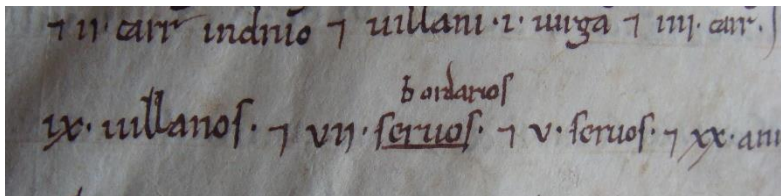 ⁊ ii· carr indnio ⁊ uillani ·i· uirga ⁊ iiii· carr·
bordarios
ix· uillanos· ⁊ vii· seruos· ⁊ v· seruos· ⁊ xx· ani